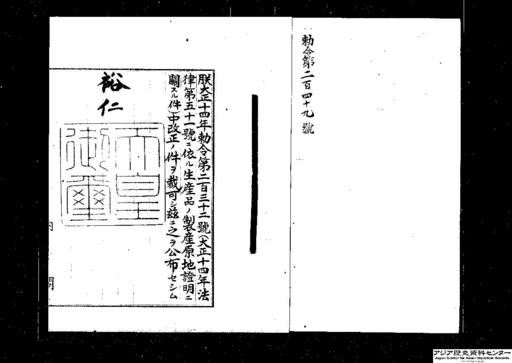 勅令第二百四十九號
朕大正十四年勅令第二百三十二號(大正十四年法
律第五十一號ニ依ル生産品ノ製産原地證明ニ
關スル件)中改正ノ件ヲ裁可シ茲ニ之ヲ公布セシム
裕仁
天皇
御璽
内閣
アジア歴史資料センター
Japan Center for Asian Historical Records